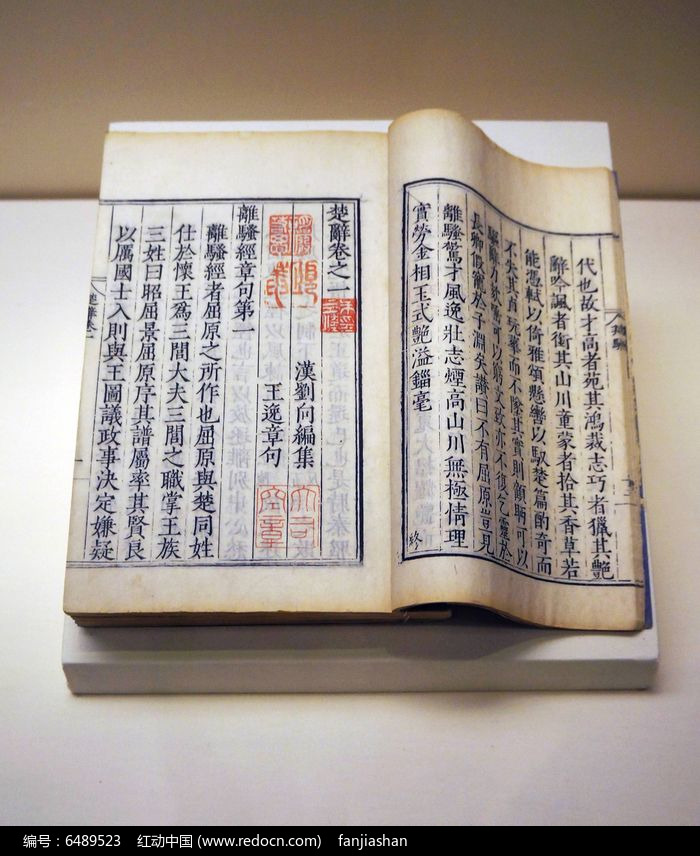 代也故才高者菀其鴻裁志巧者獵其艷
辭吟諷者銜其山川童蒙者拾其香草若
能憑軾以倚雅頌懸轡以馭楚篇酌奇而
不失其貞玩華而不墜其實則顧盼可以
驅辭力欬唾可以窮文致亦不復乞靈於
長卿假寵於子淵矣讚曰不有屈原豈見
離騷驚才風逸壯志煙高山川無極情理
實勞金相玉式艷溢錙毫
終
楚辭卷之一
漢劉向編集
王逸章句
離騷經章句第一
離騷經者屈原之所作也屈原與楚同姓
仕於懷王為三閭大夫三閭之職掌王族
三姓曰昭屈景屈原序其譜屬率其賢良
以厲國士入則與王圖議政事決定嫌疑
编号：6489523 红动中国 (www.redocn.com) fanjiashan